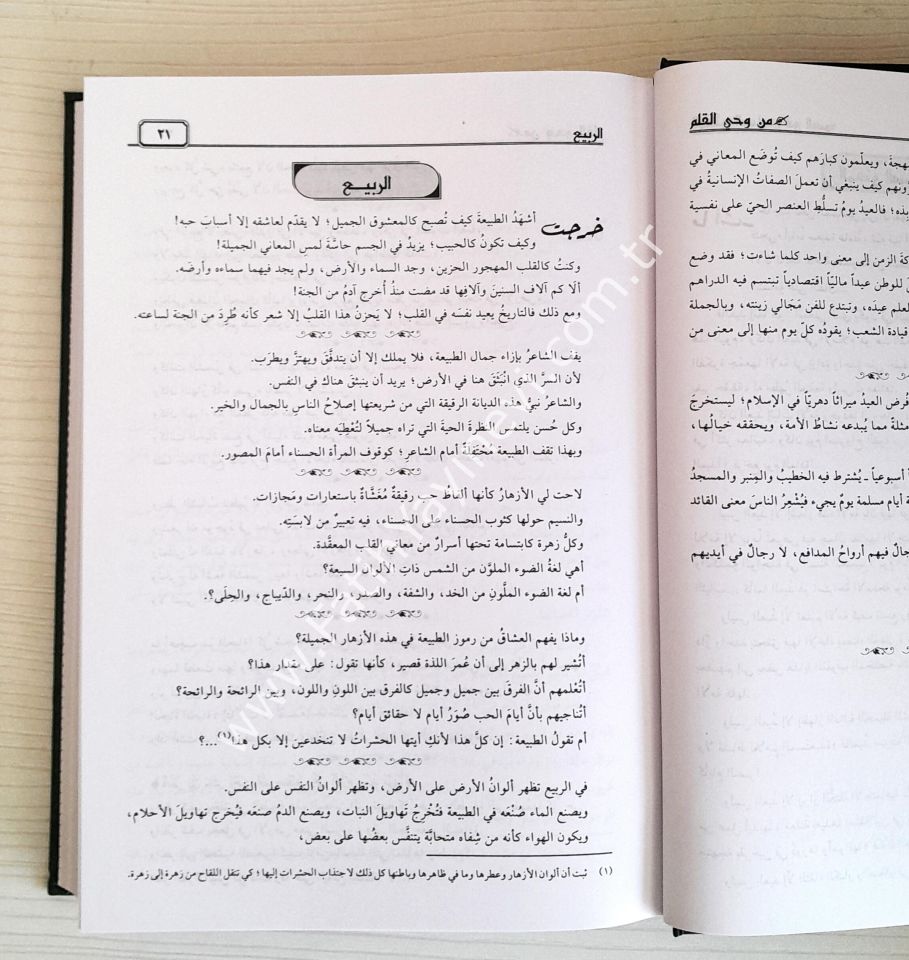 من وحي القلم
مهجة، ويعلّمون كبارَهم كيف تُوضَع المعاني في
ونهم كيف ينبغي أن تعملَ الصفاتُ الإنسانية في
يذه؛ فالعيدُ يومُ تسلُّطِ العنصر الحيّ على نفسية
كةَ الزمن إلى معنى واحد كلما شاءت؛ فقد وضع
للوطن عيداً ماليّاً اقتصادياً تبتسم فيه الدراهم
لعلم عيدَه، وتبتدع للفن مَجَالي زينته، وبالجملة
قيادة الشعب؛ يقودُه كلّ يوم منها إلى معنى من
فُرض العيدُ ميراثاً دهريّاً في الإسلام؛ ليستخرجَ
مثلةً مما يُبدعه نشاطُ الأمة، ويحققه خيالُها،
أسبوعياً ـ يُشترط فيه الخطيبُ والمنبر والمسجدُ
ة أيام مسلمة يومٌ يجيء فيُشْعِرُ الناسَ معنى القائد
جالٌ فيهم أرواحُ المدافع، لا رجالٌ في أيديهم
الربيع
٢١
الربيــع
خرجت أشهَدُ الطبيعةَ كيف تُصبح كالمعشوق الجميل؛ لا يقدّم لعاشقه إلا أسبابَ حبه!
وكيف تكونُ كالحبيب؛ يزيدُ في الجسم حاسَّةَ لمسِ المعاني الجميلة!
وكنتُ كالقلب المهجور الحزين، وجد السماء والأرض، ولم يجد فيهما سماءه وأرضَه.
ألا كم آلاف السنينَ وآلافِها قد مضت منذُ أُخرج آدمُ من الجنة!
ومع ذلك فالتاريخُ يعيد نفسَه في القلب؛ لا يَحزنُ هذا القلبُ إلا شعر كأنه طُرِدَ من الجنة لساعته.
يقف الشاعرُ بإزاء جمال الطبيعة، فلا يملك إلا أن يتدفَّقَ ويهتزَّ ويطرَب.
لأن السرَّ الذي انْبَثَقَ هنا في الأرض؛ يريد أن ينبثقَ هناك في النفس.
والشاعرُ نبيُّ هذه الديانة الرقيقة التي من شريعتها إصلاحُ الناسِ بالجمال والخير.
وكل حُسن يلتمس النظرةَ الحيةَ التي تراه جميلاً لتُعْطِيَه معناه.
وبهذا تقف الطبيعة مُحْتَفِلَةً أمام الشاعر؛ كوقوف المرأة الحسناء أمامَ المصور.
لاحت لي الأزهارُ كأنها ألفاظُ حب رقيقةٌ مُغَشَّاةٌ باستعارات ومَجازات.
والنسيم حولها كثوب الحسناء على الحسناء، فيه تعبيرٌ من لابسَتِه.
وكلُّ زهرة كابتسامة تحتها أسرارٌ من معاني القلب المعقَّدة.
أهي لغةُ الضوء الملوَّن من الشمس ذاتِ الألوان السبعة؟
أم لغة الضوء الملَّونِ من الخد، والشفة، والصدر، والنحر، والدّيباج، والحِلَى؟.
وماذا يفهم العشاقُ من رموز الطبيعة في هذه الأزهار الجميلة؟
أتُشير لهم بالزهر إلى أن عُمرَ اللذة قصير، كأنها تقول: على مقدار هذا؟
أتُعْلمهم أنَّ الفرقَ بين جميل وجميل كالفرق بين اللونِ واللون، وبين الرائحة والرائحة؟
أتُناجيهم بأنَّ أيامَ الحب صُوَرُ أيام لا حقائق أيام؟
أم تقولُ الطبيعة: إن كلَّ هذا لأنكِ أيتها الحشراتُ لا تنخدعين إلا بكل هذا(١)...؟
في الربيع تظهر ألوانُ الأرض على الأرض، وتظهر ألوانُ النفس على النفس.
ويصنع الماء صُنْعَه في الطبيعة فتُخْرِجُ تَهاويلَ النبات، ويصنع الدمُ صنعَه فيُخرج تهاويلَ الأحلام،
ويكون الهواء كأنه من شِفاه متحابَّة يتنفَّس بعضُها على بعض،
(١) ثبت أن ألوان الأزهار وعطرها وما في ظاهرها وباطنها كل ذلك لاجتذاب الحشرات إليها؛ كي تنقل اللقاح من زهرة إلى زهرة.
www.fatihyayinevi.com.tr